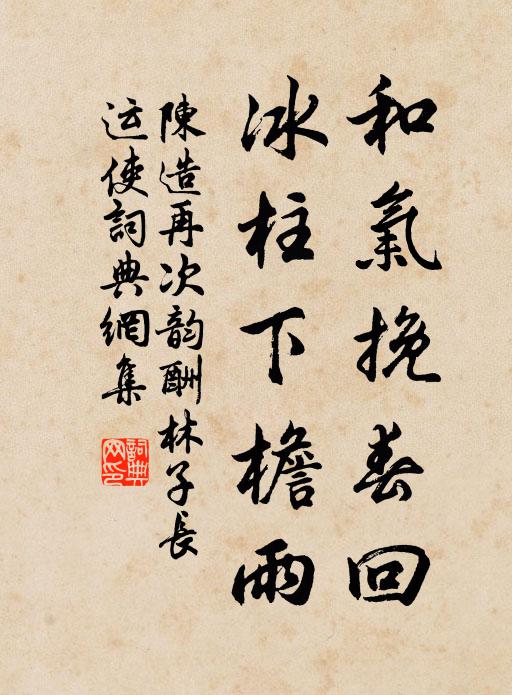 和氣挽春回
冰柱下檐雨
陳造再次韵酬林子長
运使詞典網集
詞典
网印